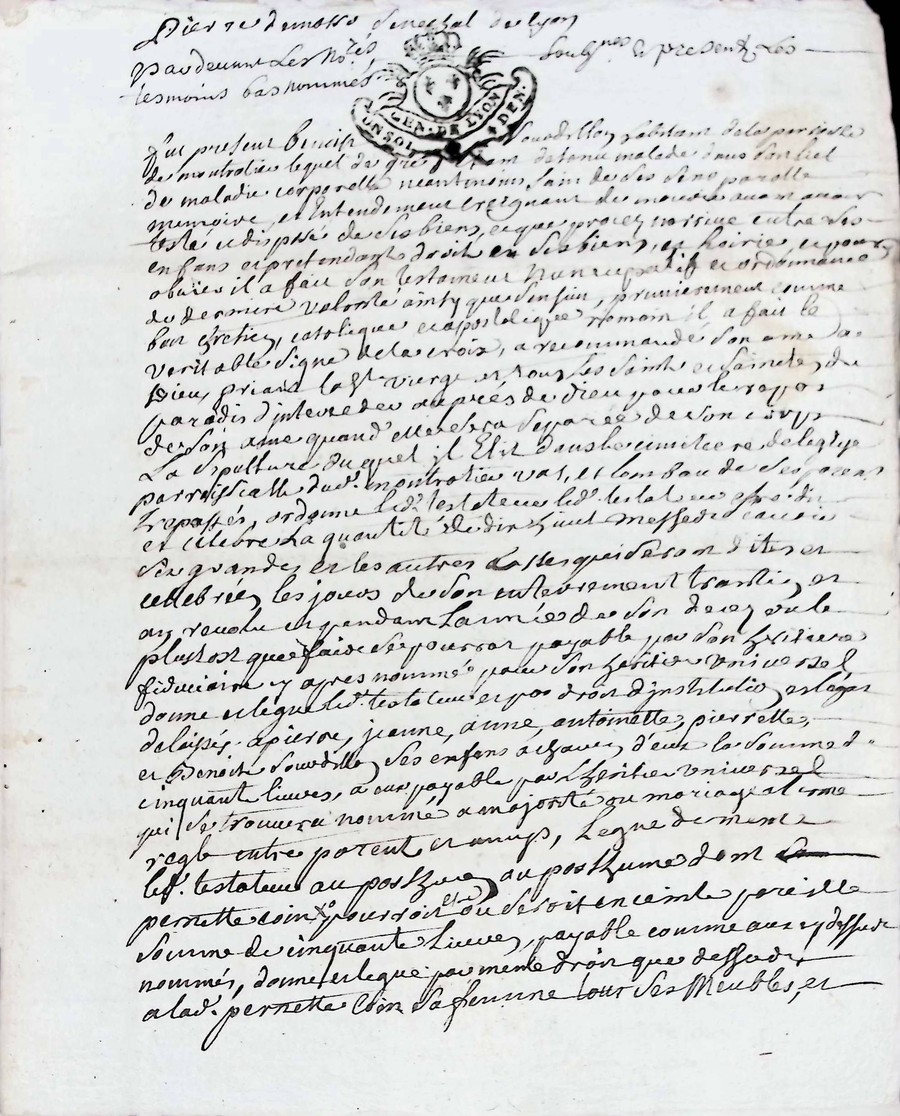 Pierre demasso Senechal de Lyon
Pardevant Les No.res soubs.nes et present Les
tesmoins bas nommés
GEN. DE LYON
Fut present Benoist Sourdillon habitant de la parroisse
de montrotier lequel de gre detenu malade dans son lict
de maladie corporelle neantmoins sain de ses sens parolle
memoire, et Entendement craignant de mourir avant avoir
testé et disposé de ses biens, et que procez narrive entre ses
enfans et pretendant droit en ses biens, et hoirie, et pour
obvier il a fait son testament Nuncupatif et ordonnance
de derniere volonté ainsy que sensuit, premierement comme
bon cretien, catolique et apostolique romain il a fait le
veritable signe de la croix, a recommandé son ame a
Dieu, priant la st. vierge et tous les saints et saintes du
paradis d'interceder auprés de dieu pour le repos
de son ame quand elle sera separée de son corps
La sepulture duquel il Elit dans le cimetiere de leglise
parroissialle dud. montrotier et tombau de ses parens
trepassés, ordonne led. testateur estre dit
et celebré la quantité de dix huit messes scavoir
six grandes et les autres basses qui seront dites et
cellebrées les jours de son enterrement et
an revolu et pendant Lannée de son decez ou le
plustost que faire se pourra payable par son heritiere
fiduciaire cy apres nommée pour son heritier universel
donne et legue led. testateur et par droit d'institution et legat
delaisse a pierre, jeanne, anne, antoinette, pierrette,
et Benoist Sourdillon ses enfans a chacun d'eux la somme de
cinquante livres, a eux payable par l'heritier universel
qui se trouvera nommé a majorité ou mariage a terme
reglé entre parent et amys, Legue de meme
led. testateur au posthume ou posthume dont
pernette coin pourroit etre ou seroit enceinte pareille
somme de cinquante livres, payable comme aux cy dessus
nommés, donne et legue par meme droit que dessus
a lad. pernette Coin sa femme tous ses Meubles, et